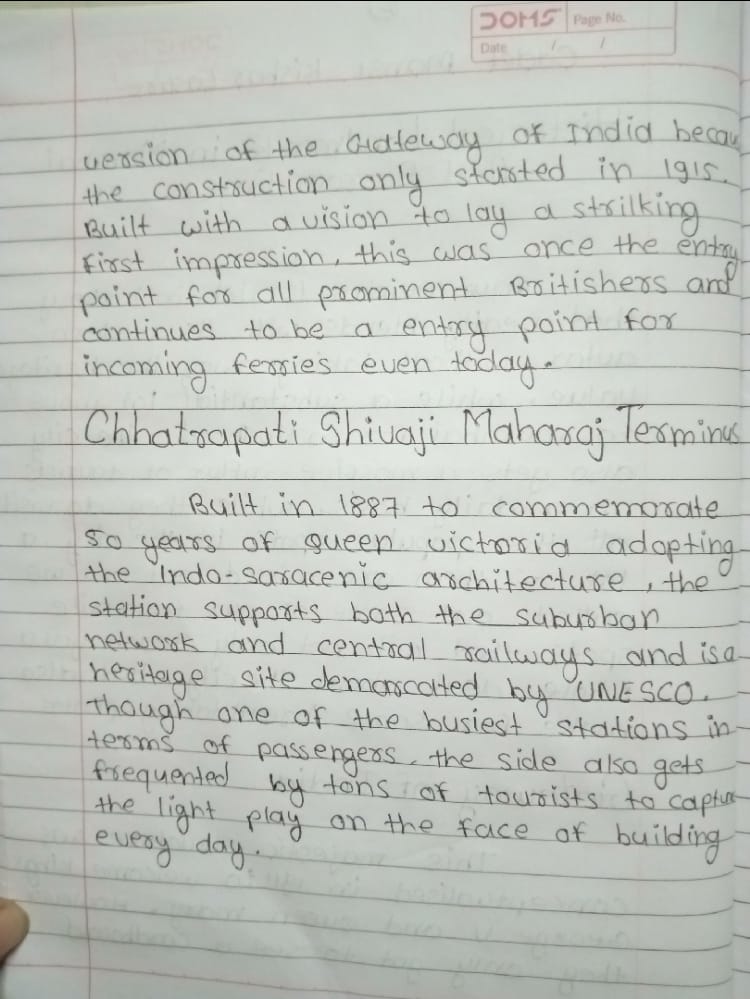 DOMS Page No.
Date / /
version of the Gateway of India becau
the construction only started in 1915.
Built with a vision to lay a strilking
First impression, this was once the entry
point for all prominent Britishers and
continues to be a entry point for
incoming ferries even today.
Chhatrapati Shivaji Maharaj Terminus
Built in 1887 to commemorate
50 years of queen victoria adopting
the Indo-saracenic architecture, the
station supports both the suburban
network and central railways and is a
heritage site demarcated by UNESCO.
Though one of the busiest stations in
terms of passengers, the side also gets
frequented by tons of tourists to captur
the light play on the face of building
every day.